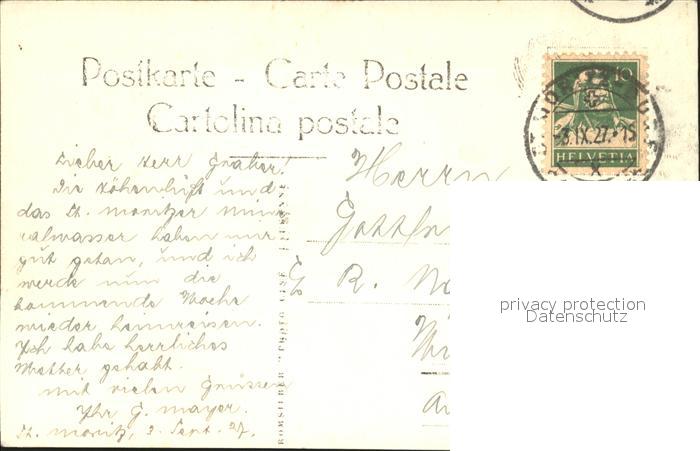 Postkarte - Carte Postale
Cartolina postale
10
3.IX.27.-15
HELVETIA
Lieber Herr Graber!
Die Höhenluft und
das St. Moritzer Mine-
ralwasser haben mir
gut getan, und ich
werde nun die
kommende Woche
wieder heimreisen.
Ich habe herrliches
Wetter gehabt.
Mit vielen Grüssen
Ihr G. Mayer.
St. Moritz, 3. Sept. 27.
Herrn
R.
privacy protection
Datenschutz